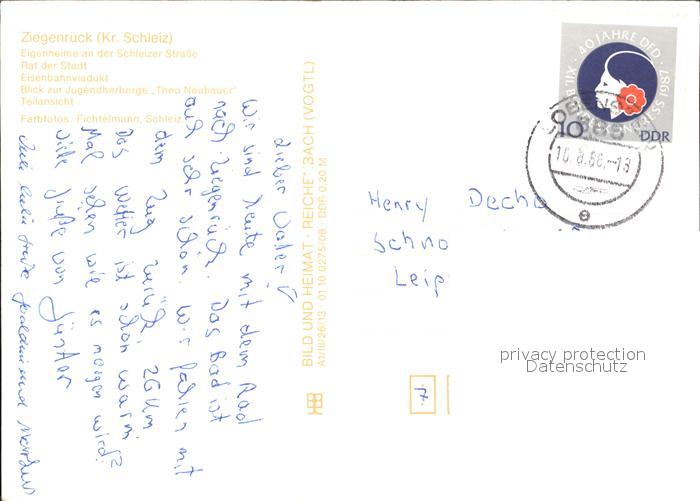 Ziegenrück (Kr. Schleiz)
Eigenheime an der Schleizer Straße
Rat der Stadt
Eisenbahnviadukt
Blick zur Jugendherberge „Theo Neubauer"
Teilansicht
Farbfotos: Fichtelmann, Schleiz
Wir sind heute mit dem Rad
nach Ziegenrück. Das Bad ist
auch sehr schön. Wir fahren mit
dem Zug zurück. 26 km.
Das Wetter ist schön warm.
Mal sehen wie es morgen wird?
Viele Grüße von Günter
BILD UND HEIMAT · REICHENBACH (VOGTL)
A1/III/26/13 · 01 10 0275/08 · DDR 0,20 M
XII. BUNDESKONGRESS 1987 · 40 JAHRE DFD ·
10
DDR
Henry Decho
Schno
Leip
7.
privacy protection
Datenschutz